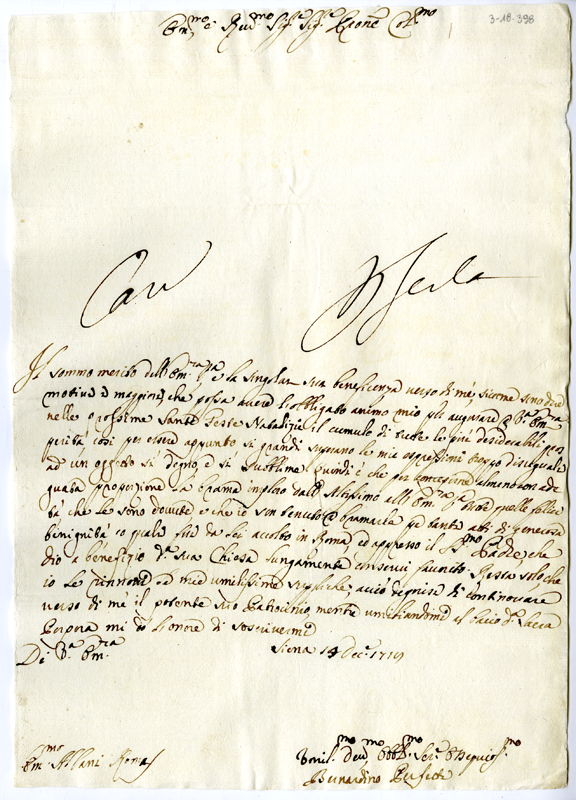 3-18-398
Em.mo e Rev.mo Sig.r Sig.r Pron.e Col.mo
Car
Il sommo merito dell'Em.za V.ra e la singolar sua beneficenza verso di me, sicome sono due
motivi i maggiori, che possa avere l'obbligato animo mio per augurare a V.ra Em.za
nelle prossime Sante Feste Natalizie il cumulo di tutte le più desiderabili pros
perità così per essere appunto si grandi superano le mie espressioni troppo disuguali
ad un oggetto si degno, e si sublime. Quindi è che per concepirne almeno con ade
guata proporzione la brama imploro dall'Altissimo all'Em.za V.ra tutte quelle felici
tà che le sono dovute e che io son tenuto a bramarle per tanti atti di generosa
benignità co quali fui da Lei accolto in Roma, ed appresso il S.mo Padre che
Dio a benefizio di sua Chiesa lungamente conservi Resta solo che
io le rinnovi le mie umilissime suppliche acciò degnisi di continovare
verso di me il potente suo Patrocinio mentre umiliandomi al bacio della Sacra
Porpora mi do l'onore di soscrivermi
Di V.ra Em.za
Siena 14 Dec. 1719
Em.mo Albani Roma
Umil.mo Dev.mo Obbl.mo Ser.e Ossequios.mo
Bernardino Perfetti